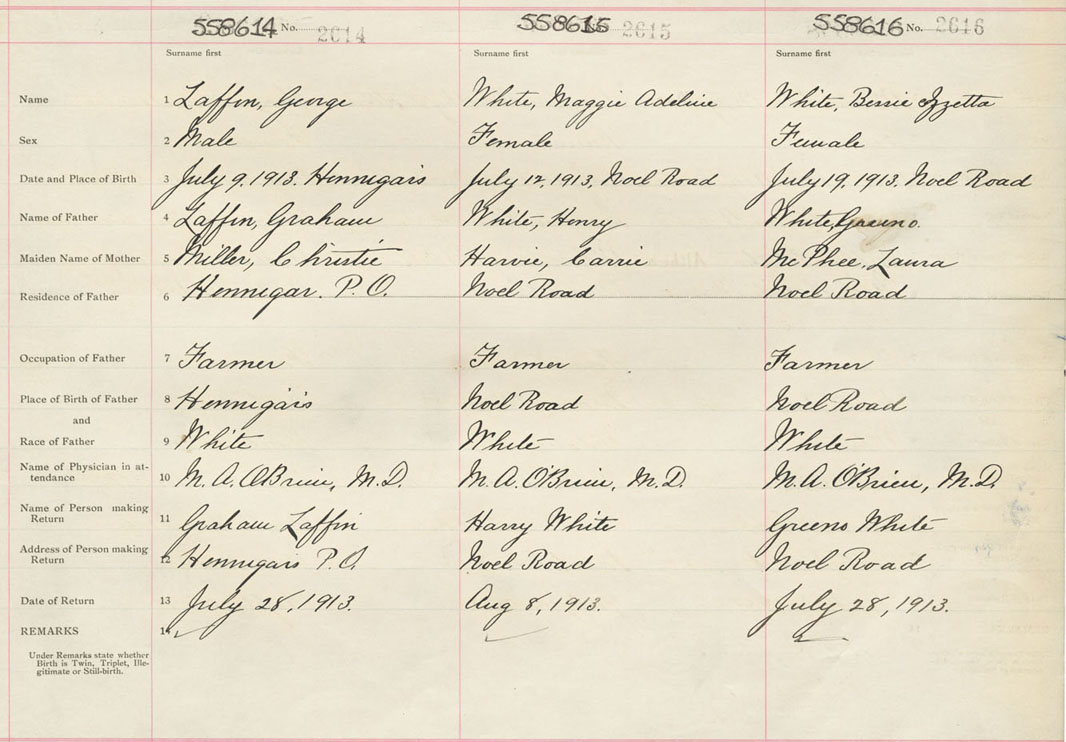 558614 No. 2614 558615 2615 558616 No. 2616
Surname first Surname first Surname first
Name 1 Laffin, George White, Maggie Adeline White, Bessie Izzetta
Sex 2 Male Female Female
Date and Place of Birth 3 July 9, 1913. Hennigars July 12, 1913, Noel Road July 19, 1913. Noel Road
Name of Father 4 Laffin, Graham White, Henry White, Greeno.
Maiden Name of Mother 5 Miller, Christie Harvie, Carrie McPhee, Laura
Residence of Father 6 Hennigar. P.O. Noel Road Noel Road
Occupation of Father 7 Farmer Farmer Farmer
Place of Birth of Father 8 Hennigars Noel Road Noel Road
and
Race of Father 9 White White White
Name of Physician in at-
tendance 10 M. A. O'Brien, M.D. M. A. O'Brien, M.D. M. A. O'Brien, M.D.
Name of Person making
Return 11 Graham Laffin Harry White Greeno White
Address of Person making
Return 12 Hennigars P.O. Noel Road Noel Road
Date of Return 13 July 28, 1913. Aug 8, 1913. July 28, 1913.
REMARKS 14
Under Remarks state whether
Birth is Twin, Triplet, Ille-
gitimate or Still-birth.